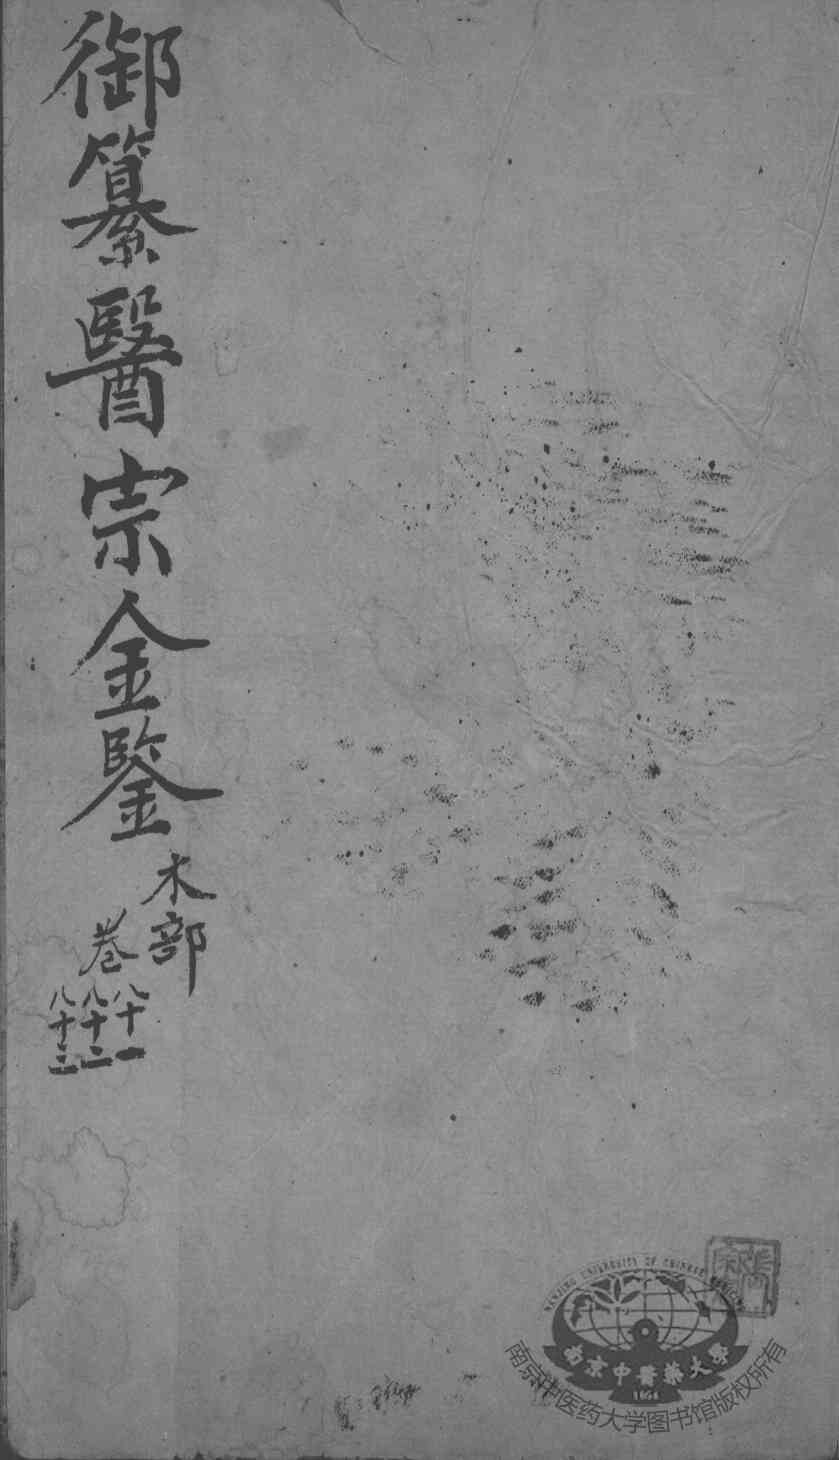 御纂醫宗金鑒
木部
卷
八十一
八十二
八十三
NANJING UNIVERSITY OF CHINESE MEDICINE
南京中醫藥大學
1954
南京中医药大学图书馆版权所有